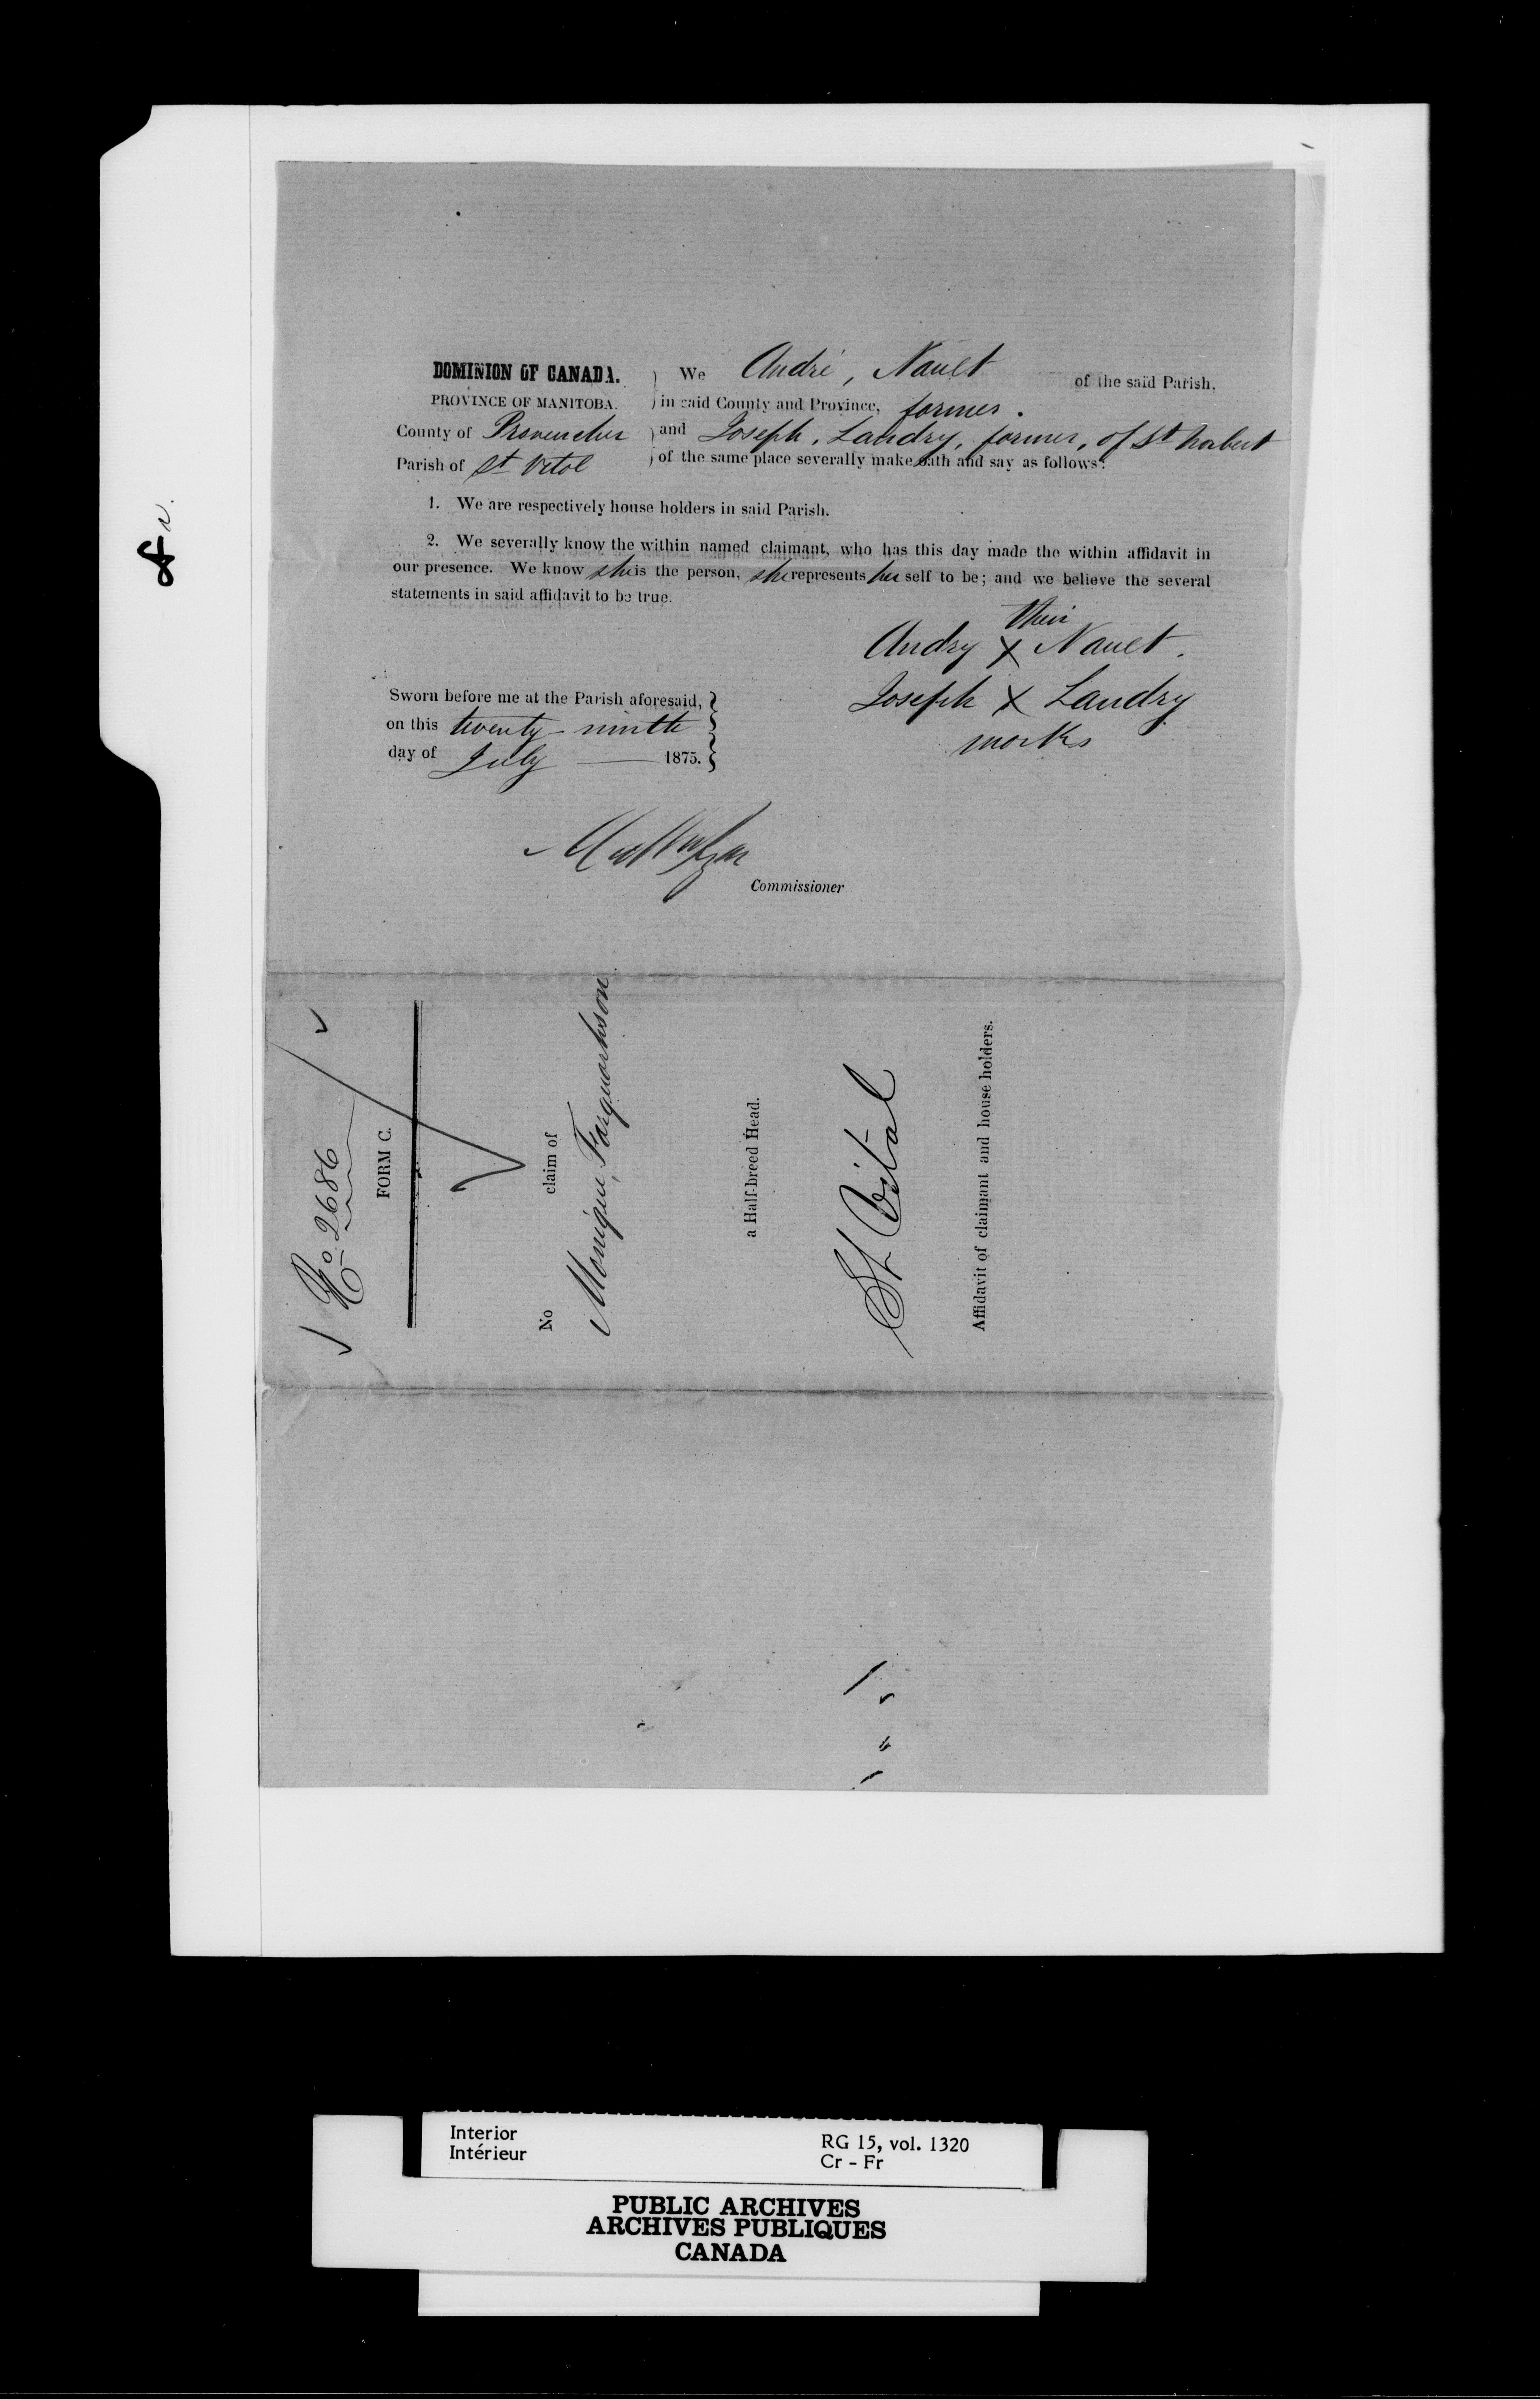 DOMINION OF CANADA.
PROVINCE OF MANITOBA.
County of Provencher
Parish of St Vital
We André, Nault of the said Parish,
in said County and Province, farmer.
and Joseph, Landry, farmer, of St Norbert
of the same place severally make oath and say as follows:
1. We are respectively house holders in said Parish.
2. We severally know the within named claimant, who has this day made the within affidavit in
our presence. We know she is the person, she represents her self to be; and we believe the several
statements in said affidavit to be true.
their
Andry X Nault.
Joseph X Landry
marks
Sworn before me at the Parish aforesaid,
on this twenty-ninth
day of July — 1875.
Commissioner
No 2686
FORM C.
No claim of
Monique, Farquarhson
a Half-breed Head.
St Vital
Affidavit of claimant and house holders.
Interior
Intérieur
RG 15, vol. 1320
Cr - Fr
PUBLIC ARCHIVES
ARCHIVES PUBLIQUES
CANADA